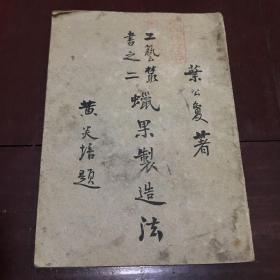 葉公敻著
工藝叢
書之二
蠟果製造法
黄炎培題